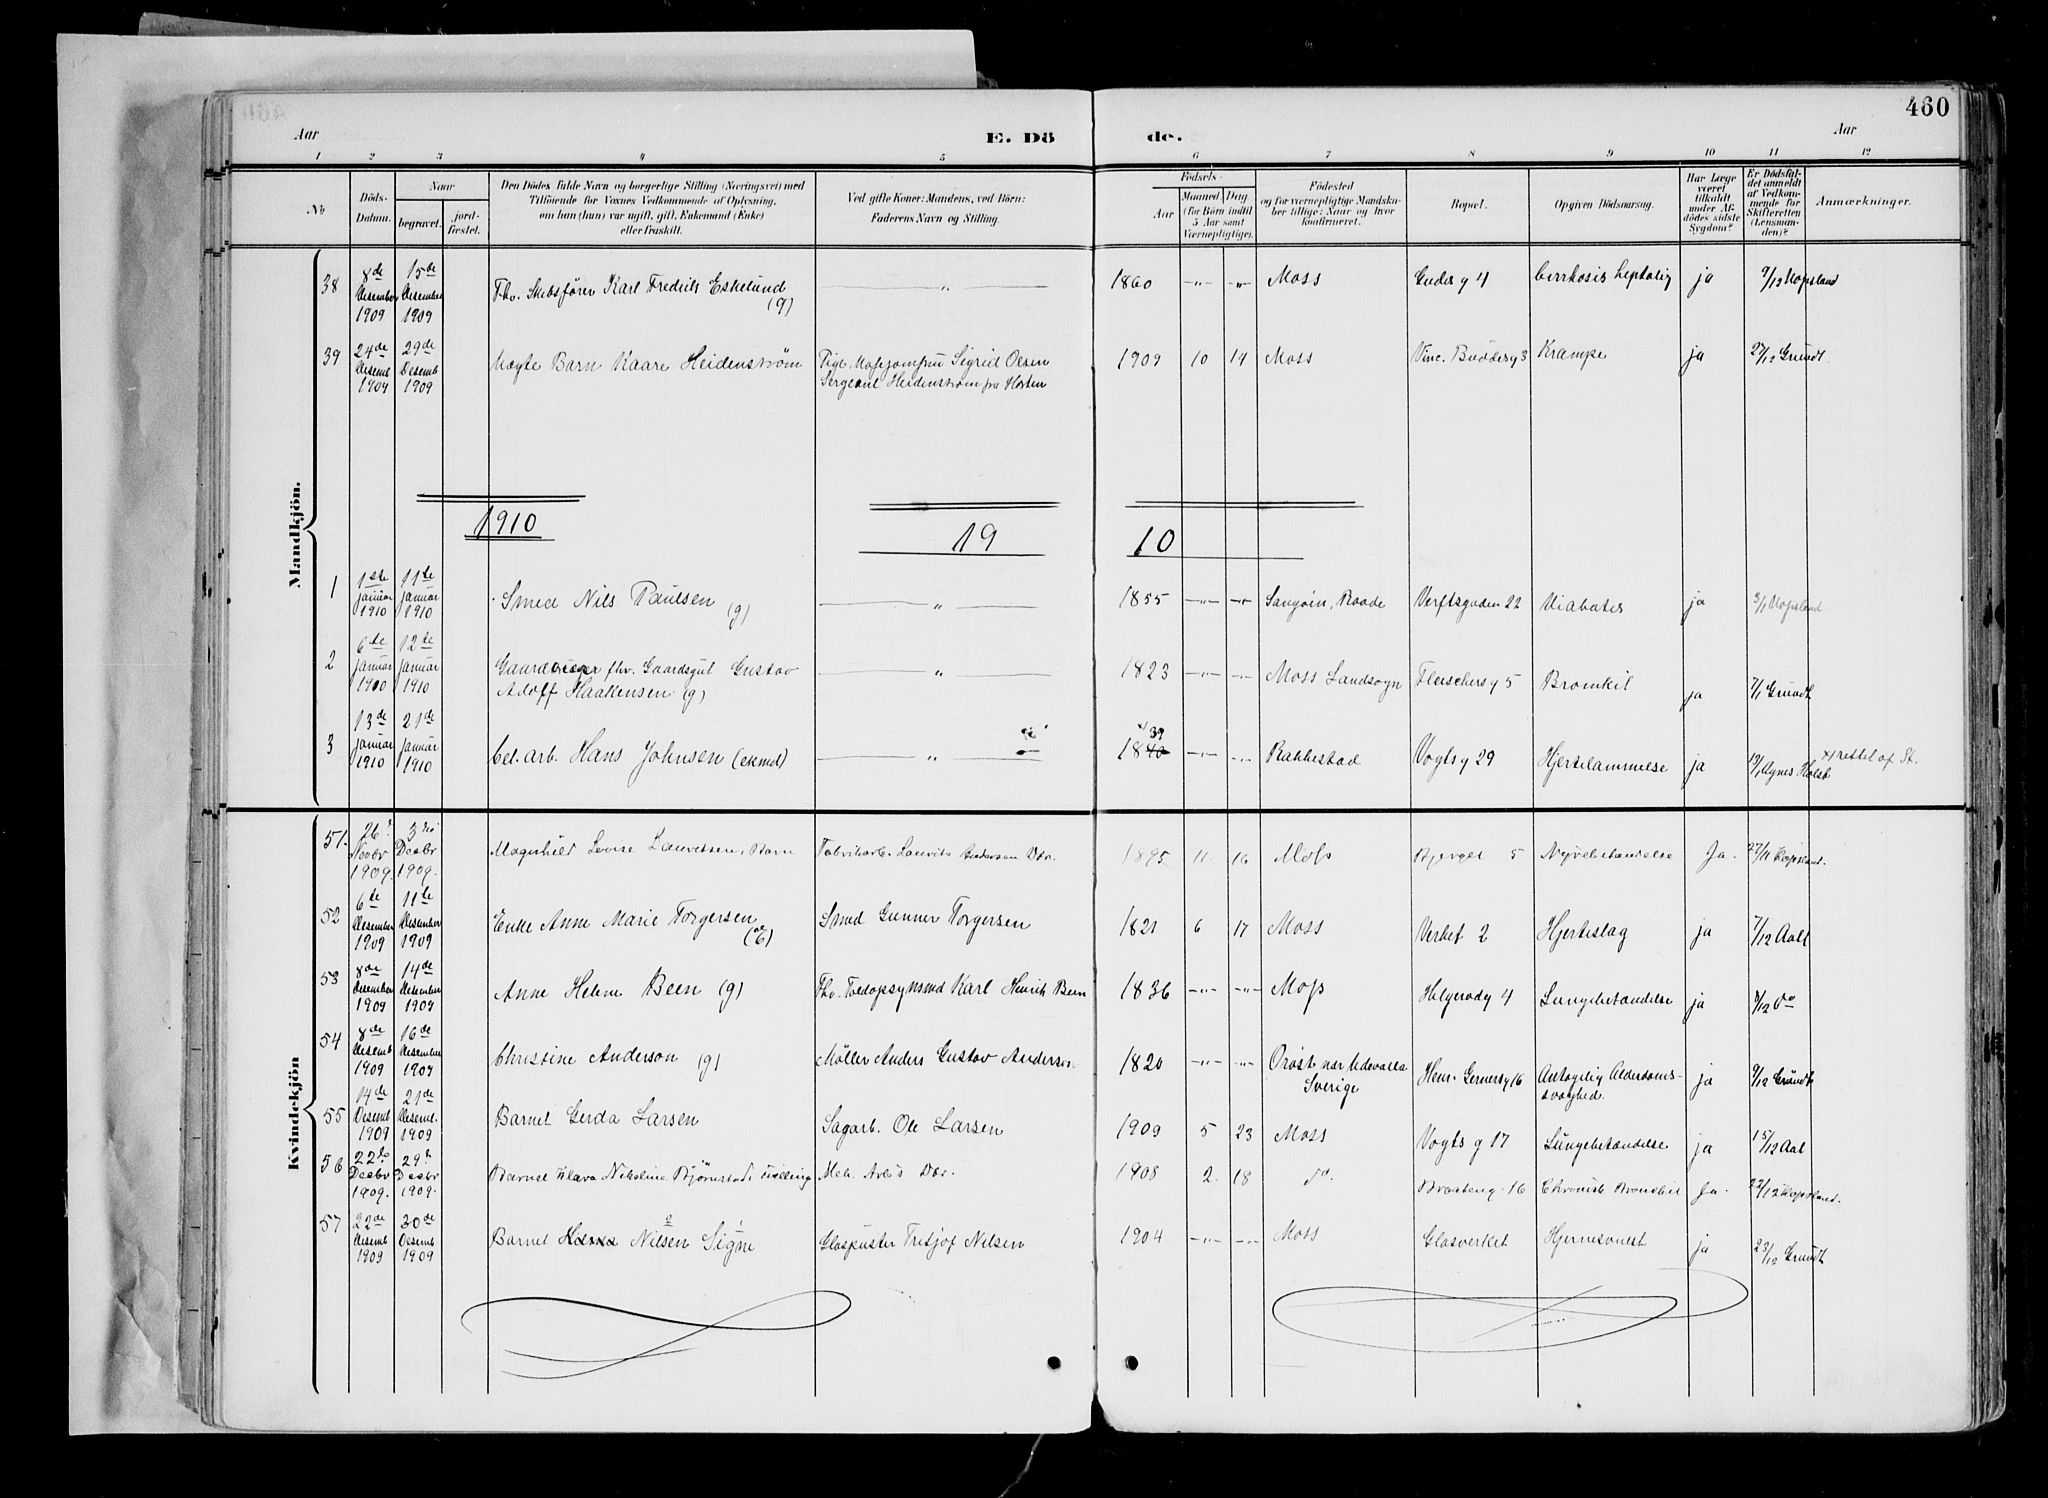 460
Aar E. Dö de. Aar
1 2 3 4 5 6 7 8 9 10 11 12
No
Döds-Datum.
Naar
begravet. jord-fæstet.
Den Dödes fulde Navn og borgerlige Stilling (Næringsvei) med
Tilföiende for Voxnes Vedkommende af Oplysning,
om han (hun) var ugift, gift, Enkemand (Enke)
eller fraskilt.
Ved gifte Koner: Mandens, ved Börn:
Faderens Navn og Stilling.
Födsels-
Aar Maaned Dag
(for Börn indtil
5 Aar samt
Værnepligtige).
Födested
og for værnepligtige Mandska-
ber tillige: Naar og hvor
konfirmeret.
Bopæl.
Opgiven Dödsaarsag.
Har Læge
været
tilkaldt
under Af-
dödes sidste
Sygdom?
Er Dödsfal-
det anmeldt
af Vedkom-
mende for
Skifteretten
(Lensman-
den)?
Anmærkninger.
Mandkjön.
38 8de Desember 1909 15de Desember 1909 Fhv. Skibsfører Karl Fredrik Eskelund (g) — " — 1860 —"— —"— Moss Gudes g 4 Cirrhosis hephatig ja 9/12 Kopsland
39 24de Desemb 1909 29de Desemb 1909 Uægte Barn Kaare Heidenstrøm Pige, Sigrid Olsen
Sergeant Heidenstrøm fra Horten 1909 10 14 Moss Vinc. Buddesg 3 Krampe ja 27/12 Grundt.
1910 19 10
1 1ste januar 1910 11te januar 1910 Smed Nils Paulsen (g) — " — 1855 —"— —"— Raade Verftsgaden 22 Diabates ja 3/1 Kopsland
2 6te januar 1910 12te januar 1910 fhv. Gaardsgut Gustav
Adolf Haakensen (g) — " — 1823 —"— —"— Moss Landsogn Fleischersg 5 Bronkit ja 7/1 Grundt
3 13de januar 1910 21de januar 1910 Cel. arb. Hans Johnsen (ekmd) — " — 1840 39 —"— —"— Rakkestad Vogtsg 29 Hjertelammelse ja 13/1 Agnes Holst x) rettet af St.
Kvindekjön
51. 26. Novbr 1909. 3 Decbr 1909. Magnhild Lovise Lauritsen, Barn Fabrikarb. Laurits Andersen Dtr. 1895 11. 16 Moss Bjerget 5 Nyrebetændelse Ja. 27/11 Kopsland.
52 6te Desember 1909 11te Desember 1909 Enke Anne Marie Torgersen (e) Smed Gunner Torgersen 1821 6 17 Moss Verket 2 Hjerteslag ja 7/12 Aall
53 8de Desember 1909 14de Desember 1909 Anne Helene Been (g) Fhv. Toldopsynsmd Karl Henrik Been 1836 —"— —"— Moss Helgerødg 4 Lungebetændelse ja 8/12 do
54 8de Desemb 1909 16de Desember 1909 Christine Anderson (g) Møller Anders Gustav Anderson 1820 —"— —"— Orost nær Udevalla
Sverige Henr. Gernersg 16 Antagelig Alderdoms-
svaghed. ja 9/12 Grundt
55 14de Desemb 1909 21de Desemb. 1909 Barnet Gerda Larsen Sagarb. Ole Larsen 1909 5 23 Moss Vogts g 17 Lungebetændelse ja 15/12 Aall
56 22de Decbr 1909. 29. Decbr 1909. Barnet Klara Nikoline Bjørnstad, Tvilling Mek. Arb's Dtr. 1908 2. 18 do. 16 Chronisk Bronchit Ja. 22/12 Kopsland.
57 22de Desemb 1909 30de Desemb 1909 Barnet Nilsen Signe Glaspuster Fritjof Nilsen 1904 —"— —"— Moss Glasverket Hjernesvulst ja 23/12 Grundt